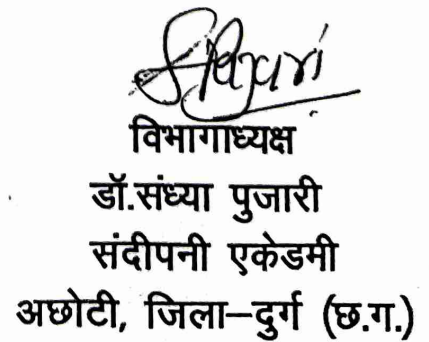 SPujari
विभागाध्यक्ष
डॉ.संध्या पुजारी
संदीपनी एकेडमी
अछोटी, जिला–दुर्ग (छ.ग.)